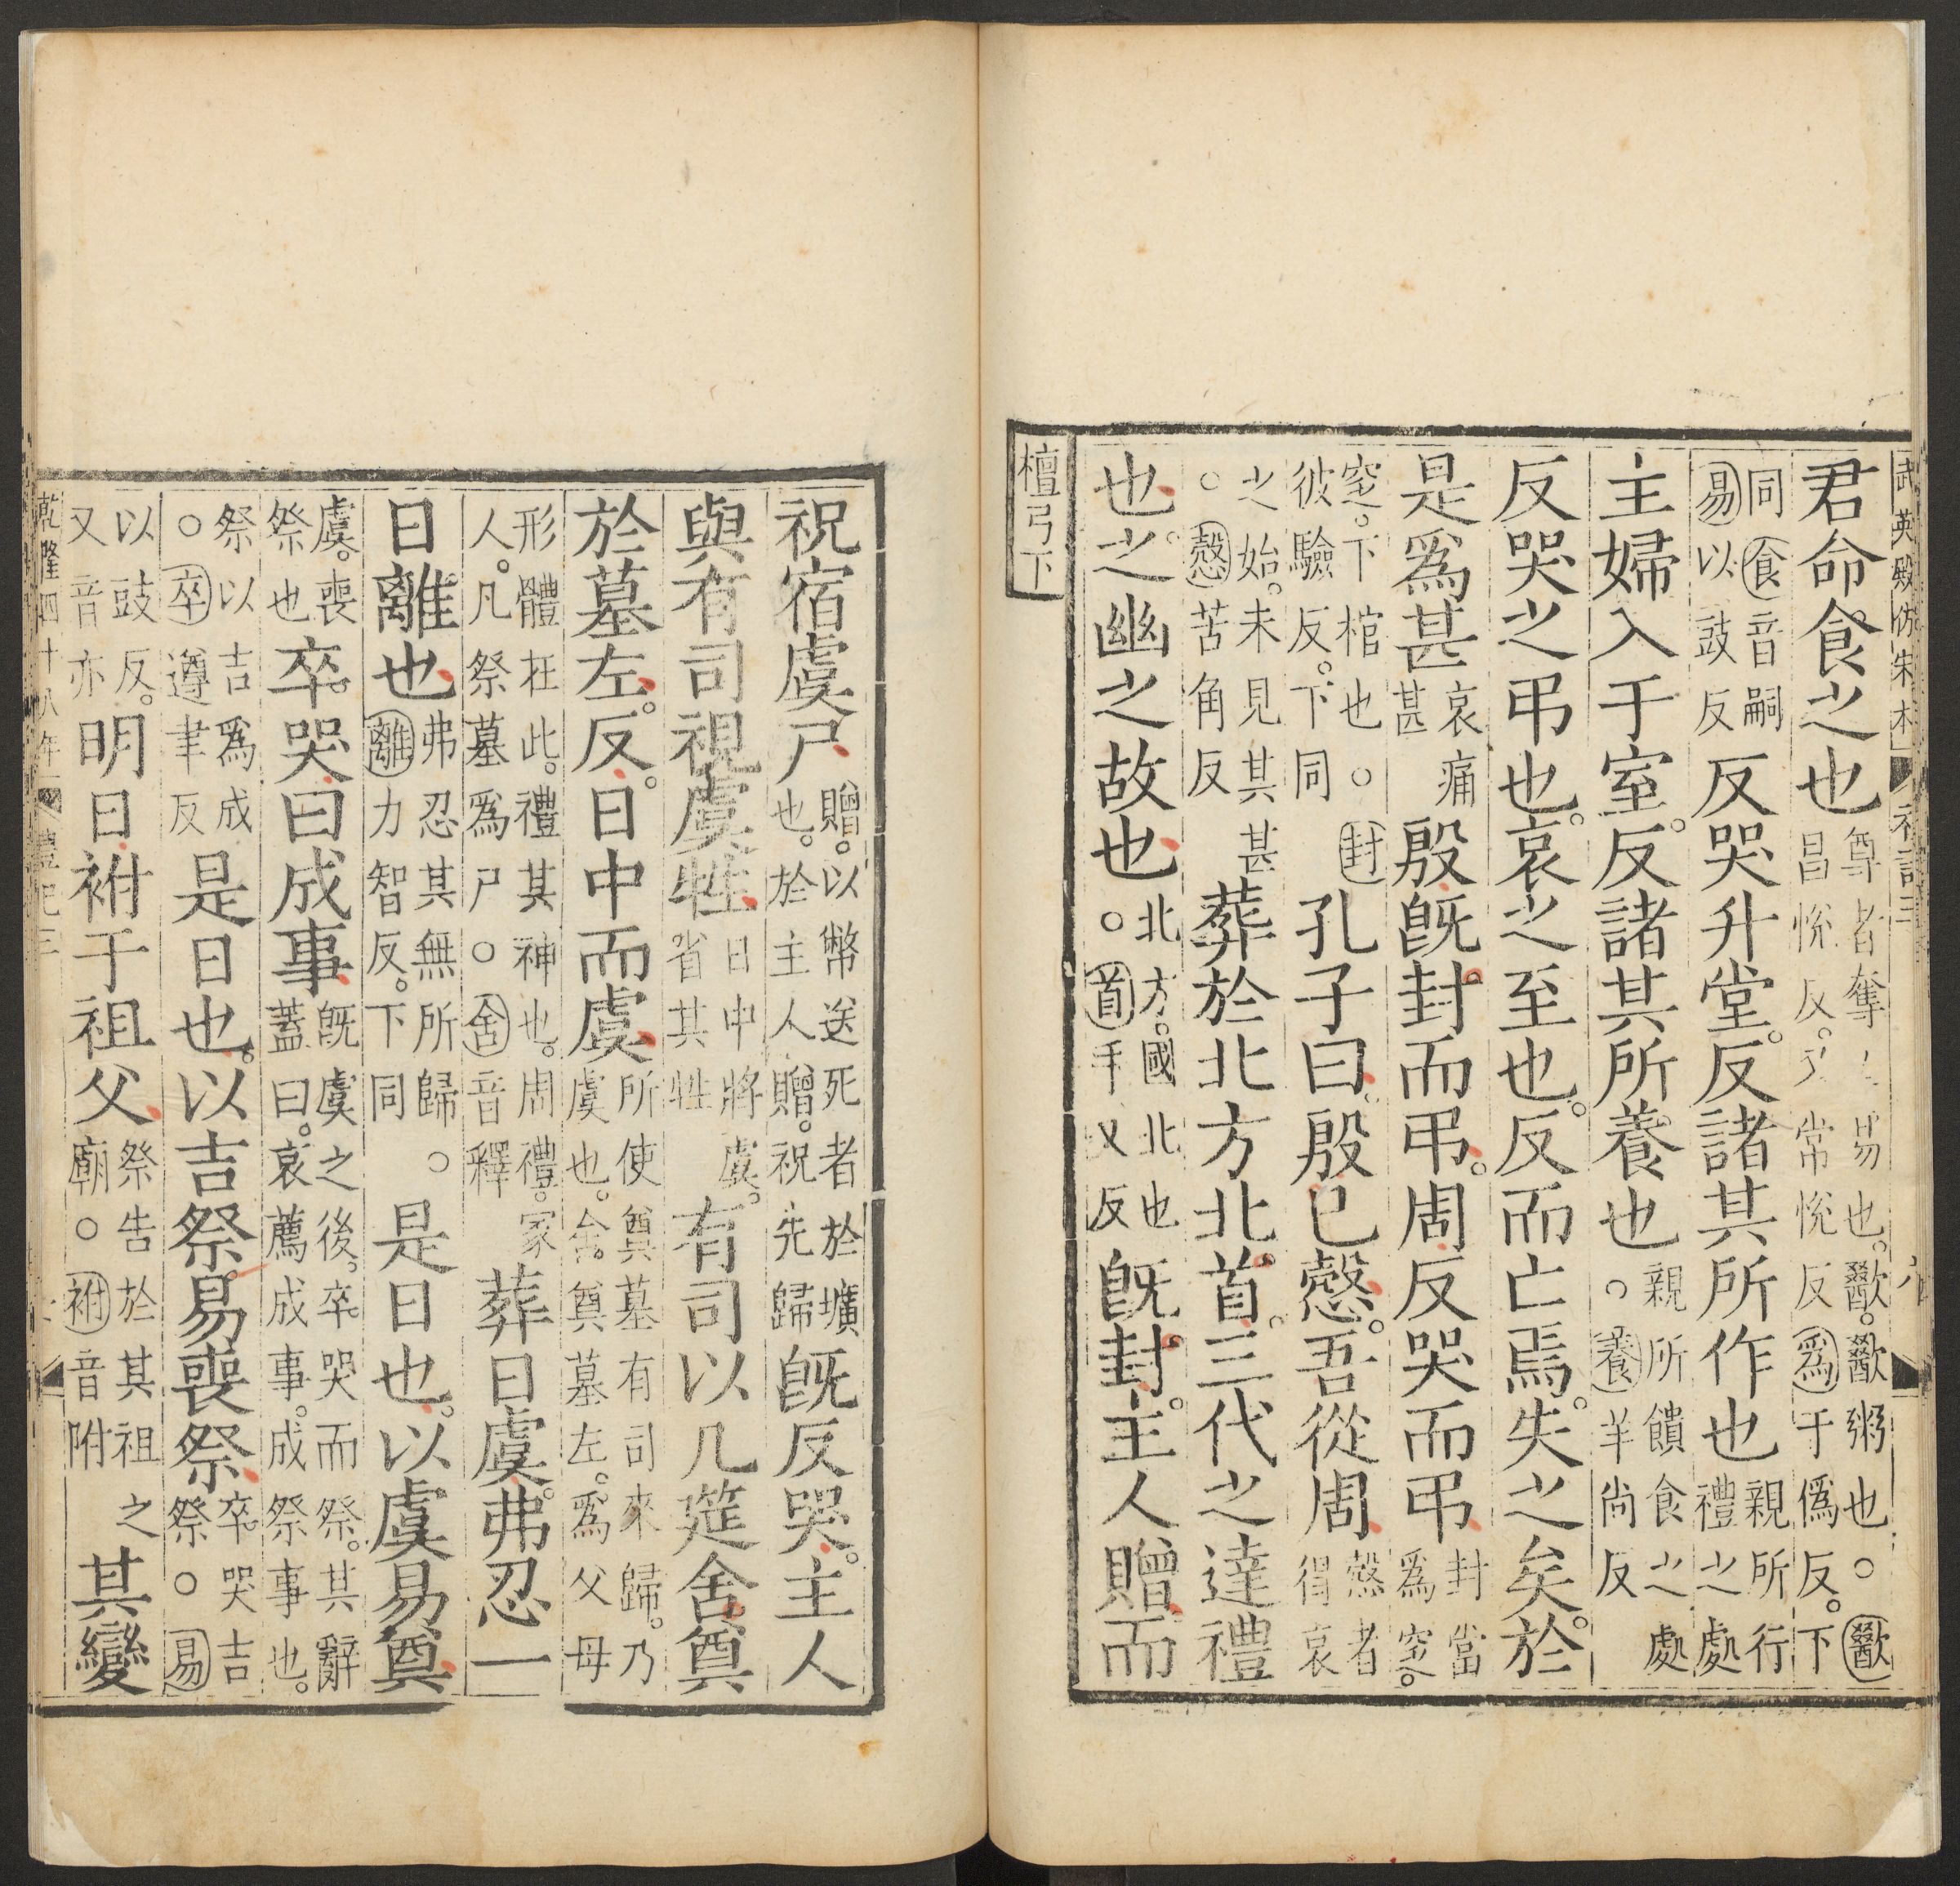 武英殿仿宋本 禮記三 八
君命食之也尊者奪 易也。歠。歠粥也○歠昌悅反。又常悅反爲于僞反。下
同食音嗣易以豉反反哭升堂。反諸其所作也親所行禮之處
主婦入于室。反諸其所養也親所饋食之處○養羊尚反
反哭之弔也。哀之至也。反而亡焉。失之矣。於
是爲甚哀痛甚殷旣封而弔。周反哭而弔封當爲窆。
窆。下棺也○封彼驗反。下同孔子曰。殷已慤。吾從周慤者得哀
之始。未見其甚○慤苦角反葬於北方北首。三代之達禮
也。之幽之故也北方。國北也○首手又反旣封。主人贈。而
檀弓下
祝宿虞尸贈。以幣送死者於壙也。於主人贈。祝先歸旣反哭。主人
與有司視虞牲日中將虞。省其牲有司以几筵舍奠
於墓左。反。日中而虞所使奠墓有司來歸。乃虞也。舍。奠墓左。爲父母
形體在此。禮其神也。周禮。冢人。凡祭墓爲尸○舍音釋葬日虞。弗忍一
日離也弗忍其無所歸○離力智反。下同是日也。以虞易奠
虞。喪祭也卒。哭曰成事旣虞之後。卒哭而祭。其辭蓋曰。哀薦成事。成祭事也。
祭以吉爲成○卒遵聿反是日也。以吉祭易喪祭卒哭吉祭○易
以豉反。又音亦明日。祔于祖父祭告於其祖之廟○祔音附其變
乾隆四十八年 禮記三